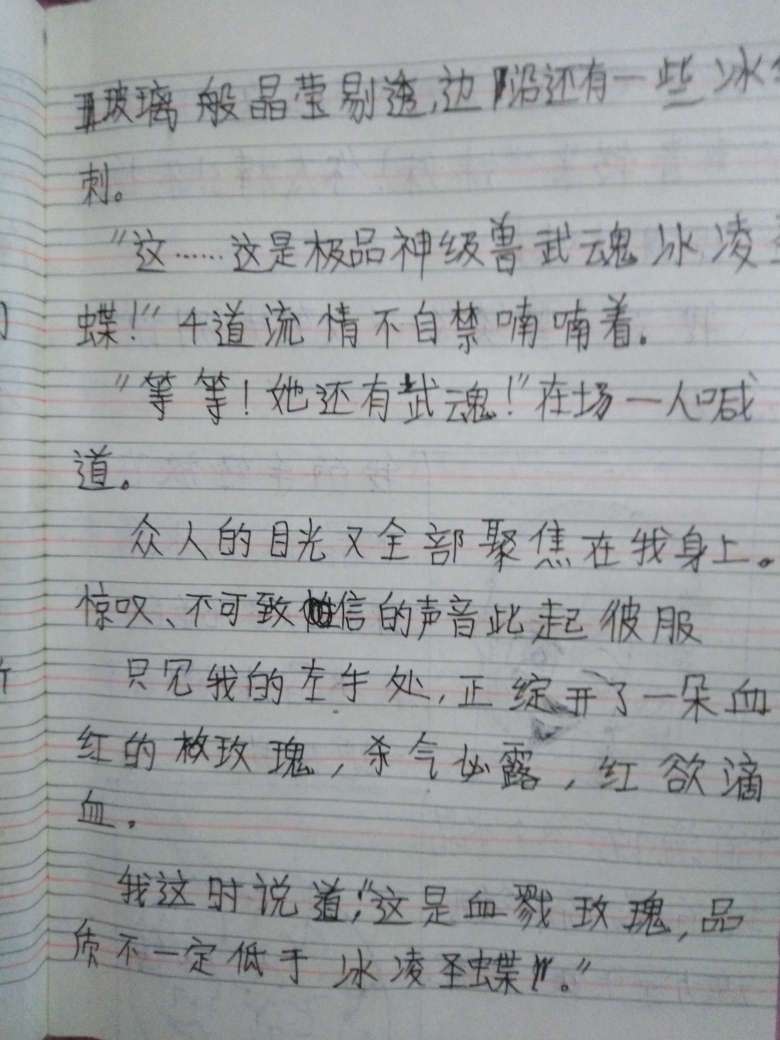 玻璃般晶莹剔透,边沿还有一些冰
刺。
"这……这是极品神级兽武魂冰凌圣
蝶!"4道流情不自禁喃喃着.
"等等!她还有武魂!"在场一人喊
道。
众人的目光又全部聚焦在我身上。
惊叹、不可致信的声音此起彼服
只见我的左手处,正绽开了一朵血
红的玫瑰,杀气必露,红欲滴
血.
我这时说道:"这是血戮玫瑰,品
质不一定低于冰凌圣蝶。"